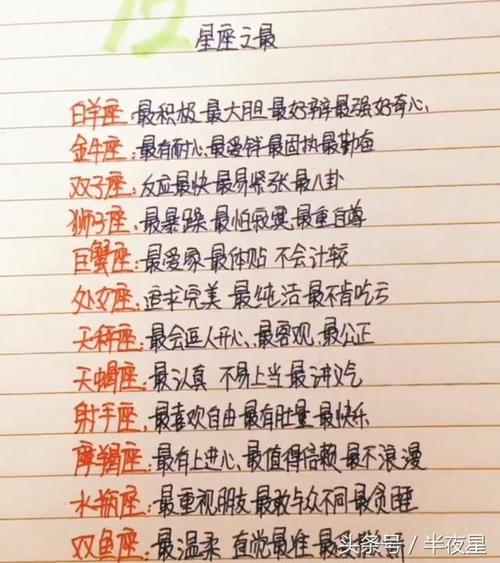 12
星座之最
白羊座:最积极 最大胆 最好辩最强好奇心
金牛座:最有耐心、最爱钱 最固执最勤奋
双子座:反应最快 最易紧张 最八卦
狮子座:最暴躁、最怕寂寞、最重自尊
巨蟹座:最爱家 最体贴 不会计较
处女座:追求完美 最纯洁 最不肯吃亏
天秤座:最会逗人开心、最客观、最公正
天蝎座:最认真 不易上当 最讲义气
射手座:最喜欢自由 最有肚量 最快乐
摩羯座:最有上进心、最值得信赖 最不浪漫
水瓶座:最重视朋友 最敢与众不同 最贪睡
双鱼座:最温柔 直觉最准
头条号/半夜星